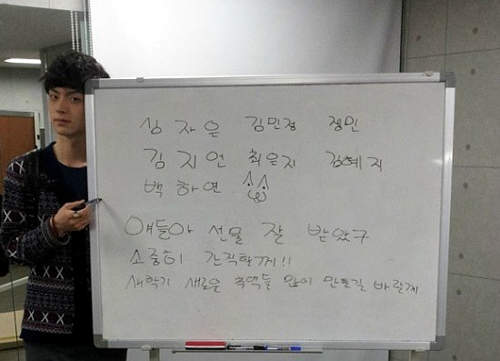 상자은 김민정 정민
김지언 최은지 김혜지
백하연
얘들아 선물 잘 받았구
소중히 간직할께!!
새학기 새로운 추억들 많이 만들길 바랄게